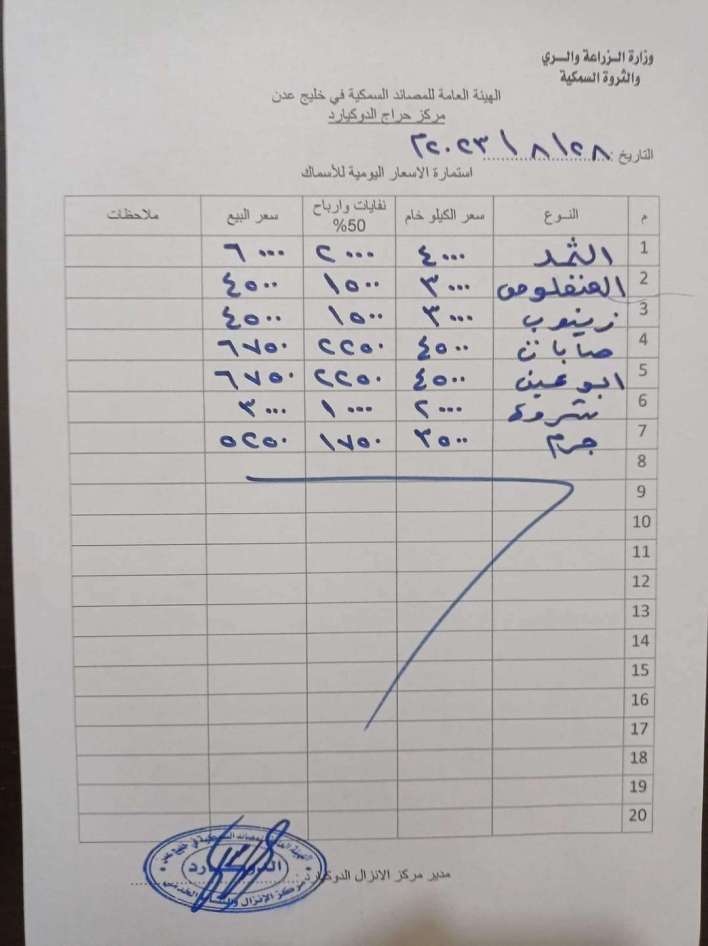 وزارة الزراعة والري
والثروة السمكية
الهيئة العامة للمصائد السمكية في خليج عدن
مركز حراج الدوكيارد
التاريخ : ٢٠٢٣/٨/٢٨
استمارة الاسعار اليومية للأسماك
م النوع سعر الكيلو خام نفايات وارباح 50% سعر البيع ملاحظات
1 الثمد ٤٠٠٠ ٢٠٠٠ ٦٠٠٠
2 العنفلوص ٣٠٠٠ ١٥٠٠ ٤٥٠٠
3 زينوب ٣٠٠٠ ١٥٠٠ ٤٥٠٠
4 صابات ٤٥٠٠ ٢٢٥٠ ٦٧٥٠
5 ابو عين ٤٥٠٠ ٢٢٥٠ ٦٧٥٠
6 شروة ٢٠٠٠ ١٠٠٠ ٣٠٠٠
7 جرم ٣٥٠٠ ١٧٥٠ ٥٢٥٠
8
9
10
11
12
13
14
15
16
17
18
19
20
مدير مركز الانزال الدوكيارد
الهيئة العامة للمصائد السمكية في خليج عدن
الدوكيارد
مركز الإنزال